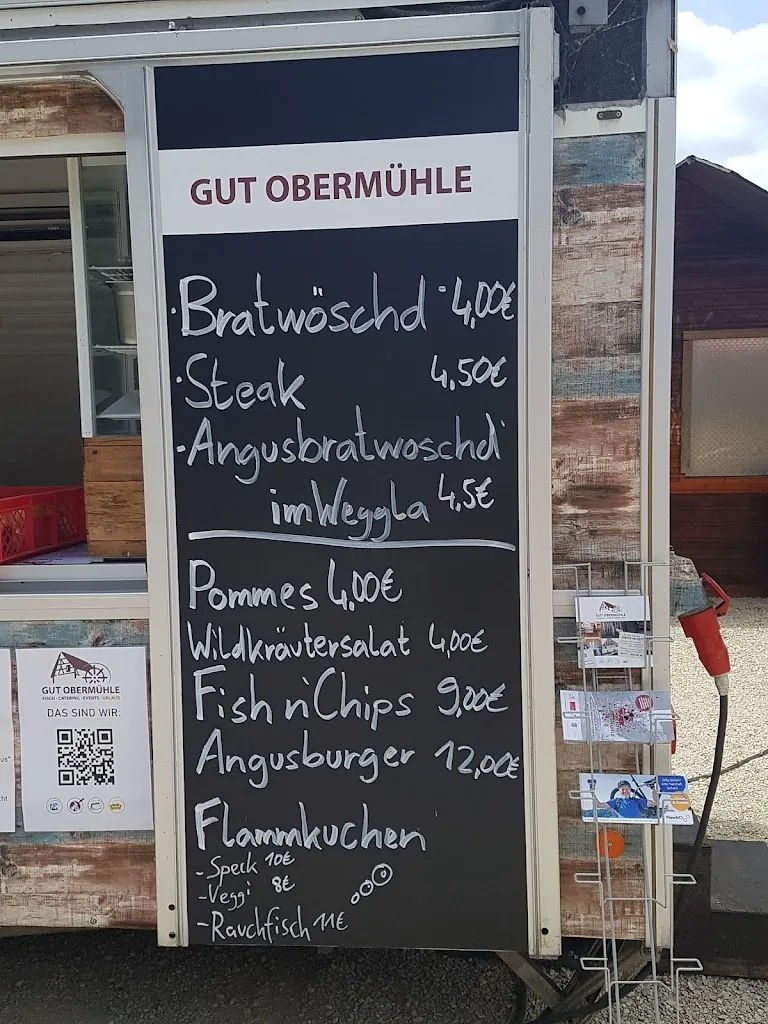 GUT OBERMÜHLE
·Bratwöschd 4,00€
·Steak 4,50€
-Angusbratwoschd
im Weggla 4,5€
Pommes 4,00€
Wildkräutersalat 4,00€
Fish n'Chips 9,00€
Angusburger 12,00€
Flammkuchen
-Speck 10€
-Veggi 8€
-Rauchfisch 11€
GUT OBERMÜHLE
FISCH · CATERING · EVENTS · URLAUB
DAS SIND WIR:
GUT OBERMÜHLE